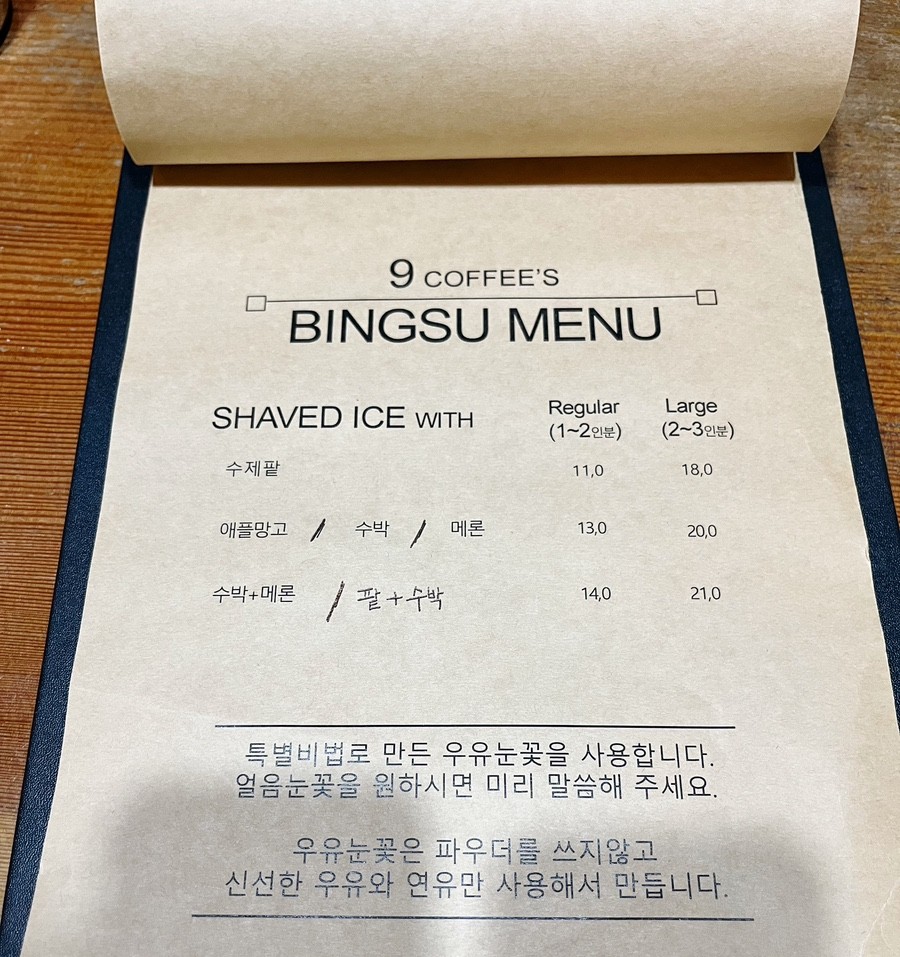 9 COFFEE'S
BINGSU MENU
SHAVED ICE WITH Regular Large
(1~2인분) (2~3인분)
수제팥 11,0 18,0
애플망고 / 수박 / 메론 13,0 20,0
수박+메론 / 팥+수박 14,0 21,0
특별비법로 만든 우유눈꽃을 사용합니다.
얼음눈꽃을 원하시면 미리 말씀해 주세요.
우유눈꽃은 파우더를 쓰지않고
신선한 우유와 연유만 사용해서 만듭니다.